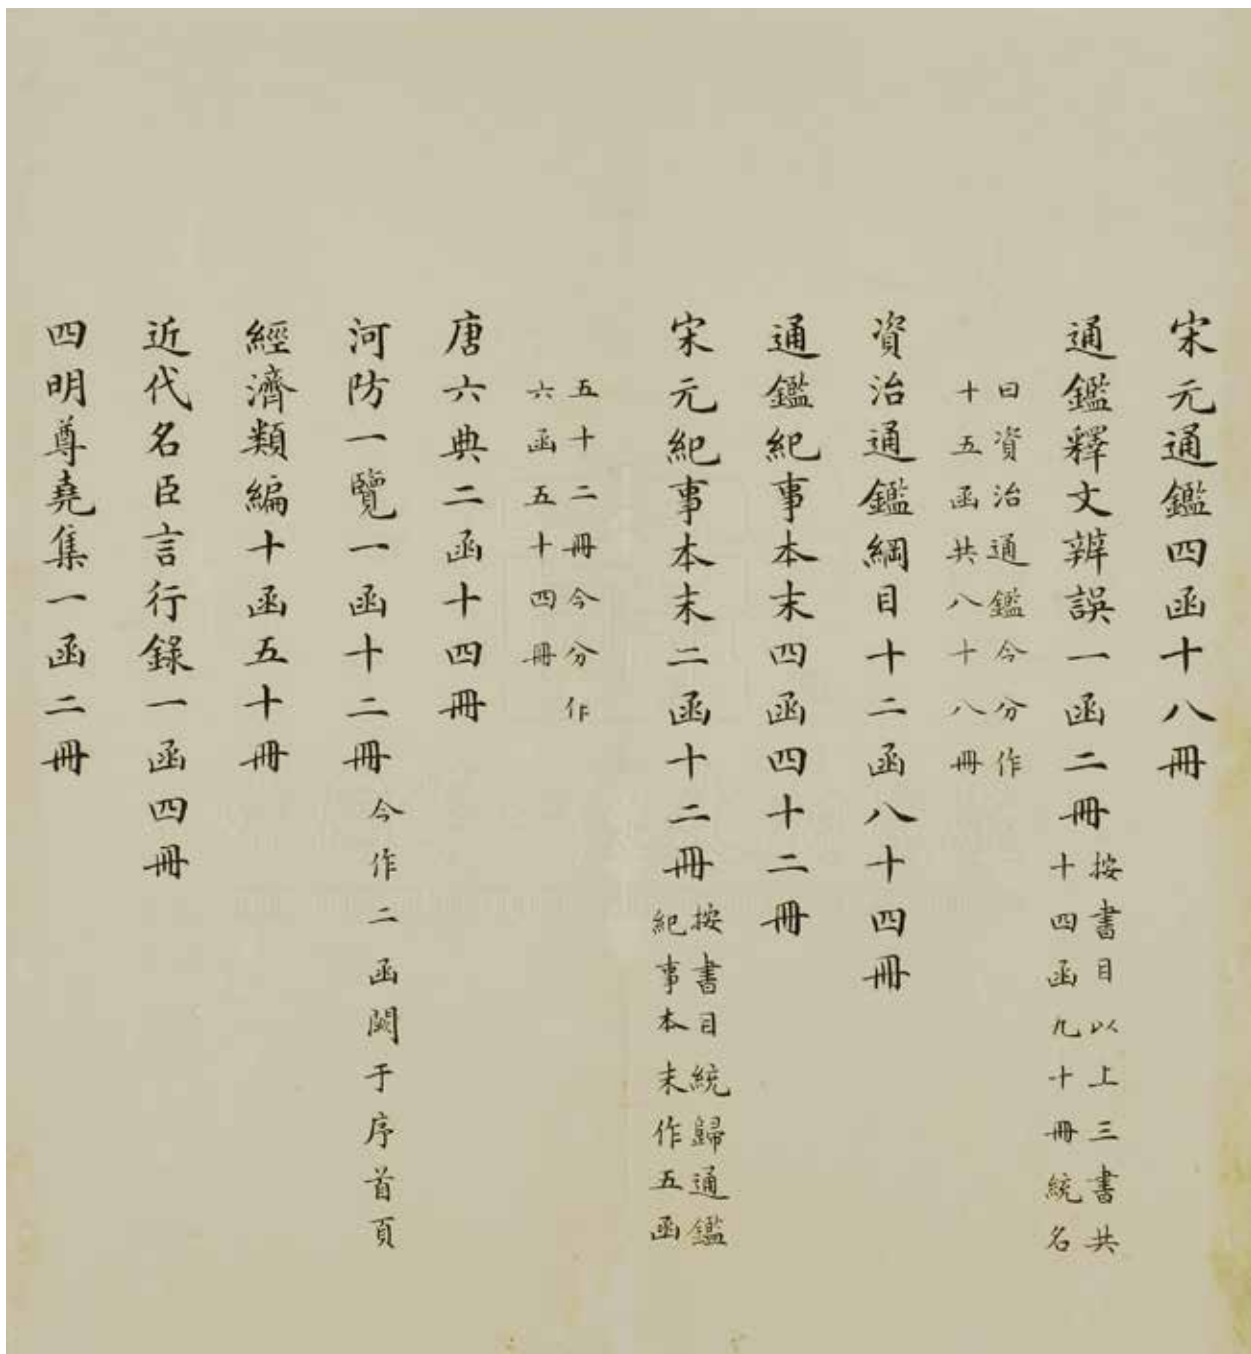 宋元通鑑四函十八冊
通鑑釋文辨誤一函二冊
按書目以上三書共
十四函九十冊統名
曰資治通鑑今分作
十五函共八十八冊
資治通鑑綱目十二函八十四冊
通鑑紀事本末四函四十二冊
宋元紀事本末二函十二冊
按書目統歸通鑑
紀事本末作五函
五十二冊今分作
六函五十四冊
唐六典二函十四冊
河防一覽一函十二冊今作二函闕于序首頁
經濟類編十函五十冊
近代名臣言行錄一函四冊
四明尊堯集一函二冊